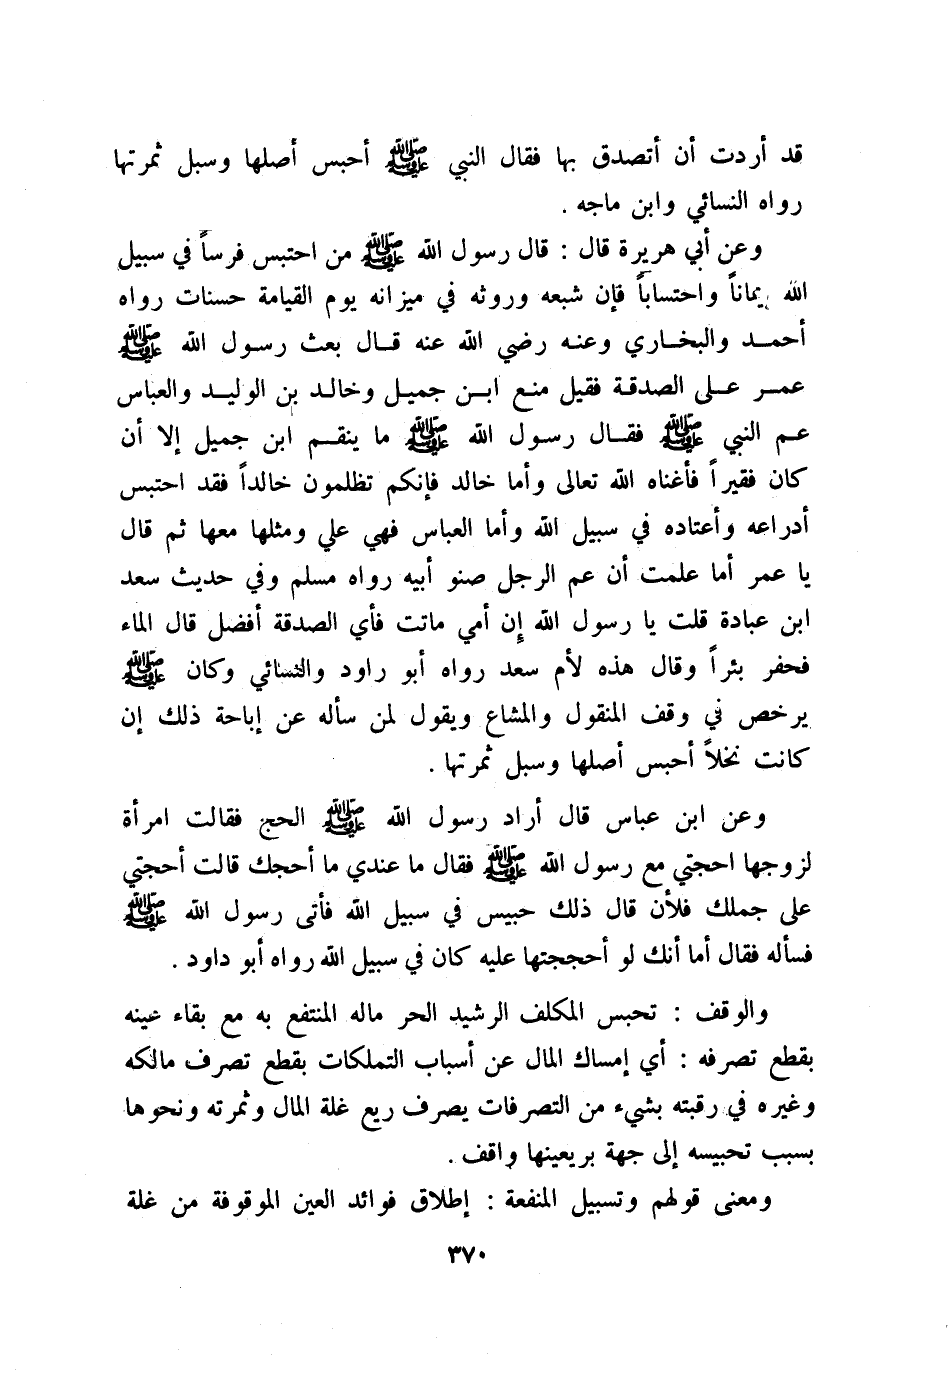 قد أردت أن أتصدق بها فقال النبي ﷺ أحبس أصلها وسبل ثمرتها
رواه النسائي وابن ماجه .
وعن أبي هريرة قال : قال رسول الله ﷺ من احتبس فرساً في سبيل
الله يماناً واحتساباً فإن شبعه وروثه في ميزانه يوم القيامة حسنات رواه
أحمـد والبخـاري وعنـه رضي الله عنه قـال بعث رسـول الله ﷺ
عمـر عـلى الصدقـة فقيل منـع ابـن جميـل وخالـد بن الوليـد والعباس
عـم النبي ﷺ فقـال رسـول الله ﷺ ما ينقـم ابن جميل إلا أن
كان فقيراً فأغناه الله تعالى وأما خالد فإنكم تظلمون خالداً فقد احتبس
أدراعه وأعتاده في سبيل الله وأما العباس فهي علي ومثلها معها ثم قال
يا عمر أما علمت أن عم الرجل صنو أبيه رواه مسلم وفي حديث سعد
ابن عبادة قلت يا رسول الله إن أمي ماتت فأي الصدقة أفضل قال الماء
فحفر بئراً وقال هذه لأم سعد رواه أبو راود والنسائي وكان ﷺ
يرخص في وقف المنقول والمشاع ويقول لمن سأله عن إباحة ذلك إن
كانت نخلاً أحبس أصلها وسبل ثمرتها .
وعن ابن عباس قال أراد رسول الله ﷺ الحج فقالت امرأة
لزوجها احجتي مع رسول الله ﷺ فقال ما عندي ما أحجك قالت أحجتي
على جملك فلأن قال ذلك حبيس في سبيل الله فأتى رسول الله ﷺ
فسأله فقال أما أنك لو أحججتها عليه كان في سبيل الله رواه أبو داود .
والوقف : تحبس المكلف الرشيد الحر ماله المنتفع به مع بقاء عينه
بقطع تصرفه : أي إمساك المال عن أسباب التملكات بقطع تصرف مالكه
وغيره في رقبته بشيء من التصرفات يصرف ريع غلة المال وثمرته ونحوها
بسبب تحبيسه إلى جهة بريعينها واقف .
ومعنى قولهم وتسبيل المنفعة : إطلاق فوائد العين الموقوفة من غلة
٣٧٠